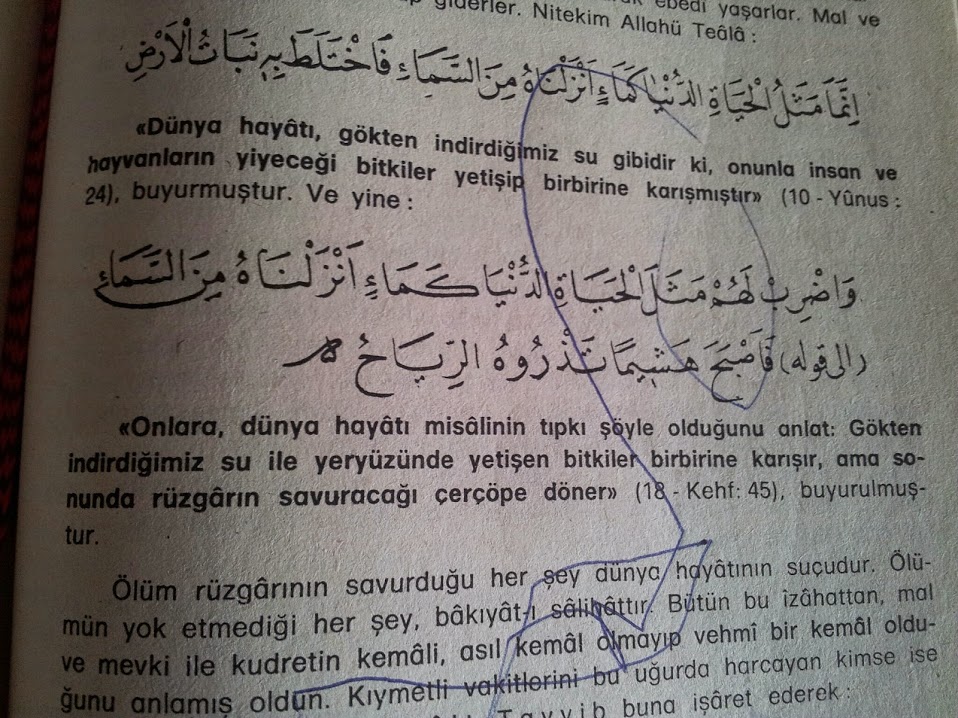 ebedî yaşarlar. Mal ve
giderler. Nitekim Allahü Teâlâ :
اِنَّمَا مَثَلُ الْحَيَاةِ الدُّنْيَا كَمَاءٍ اَنْزَلْنَاهُ مِنَ السَّمَاءِ فَاخْتَلَطَ بِهِ نَبَاتُ الْاَرْضِ
«Dünya hayâtı, gökten indirdiğimiz su gibidir ki, onunla insan ve
hayvanların yiyeceği bitkiler yetişip birbirine karışmıştır» (10 - Yûnus :
24), buyurmuştur. Ve yine :
وَاضْرِبْ لَهُمْ مَثَلَ الْحَيَاةِ الدُّنْيَا كَمَاءٍ اَنْزَلْنَاهُ مِنَ السَّمَاءِ
(الى قوله) فَاَصْبَحَ هَشِيمًا تَذْرُوهُ الرِّيَاحُ
«Onlara, dünya hayâtı misâlinin tıpkı şöyle olduğunu anlat: Gökten
indirdiğimiz su ile yeryüzünde yetişen bitkiler birbirine karışır, ama so-
nunda rüzgârın savuracağı çerçöpe döner» (18 - Kehf: 45), buyurulmuş-
tur.
Ölüm rüzgârının savurduğu her şey dünya hayâtının suçudur. Ölü-
mün yok etmediği her şey, bâkıyât-ı sâlihâttır. Bütün bu izâhattan, mal
ve mevki ile kudretin kemâli, asıl kemâl olmayıp vehmî bir kemâl oldu-
ğunu anlamış oldun. Kıymetli vakitlerini bu uğurda harcayan kimse ise
Tayyib buna işâret ederek :